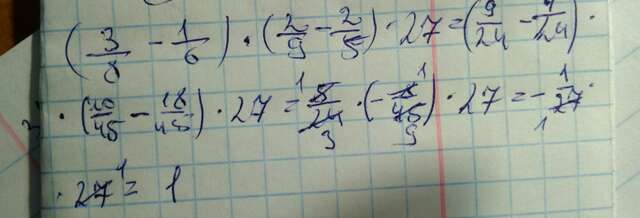 (3/8 - 1/6) · (2/9 - 2/5) · 27 = (9/24 - 4/24) ·
· (10/45 - 18/45) · 27 = 5/24 · (- 8/45) · 27 = - 1/27 ·
· 27 = 1